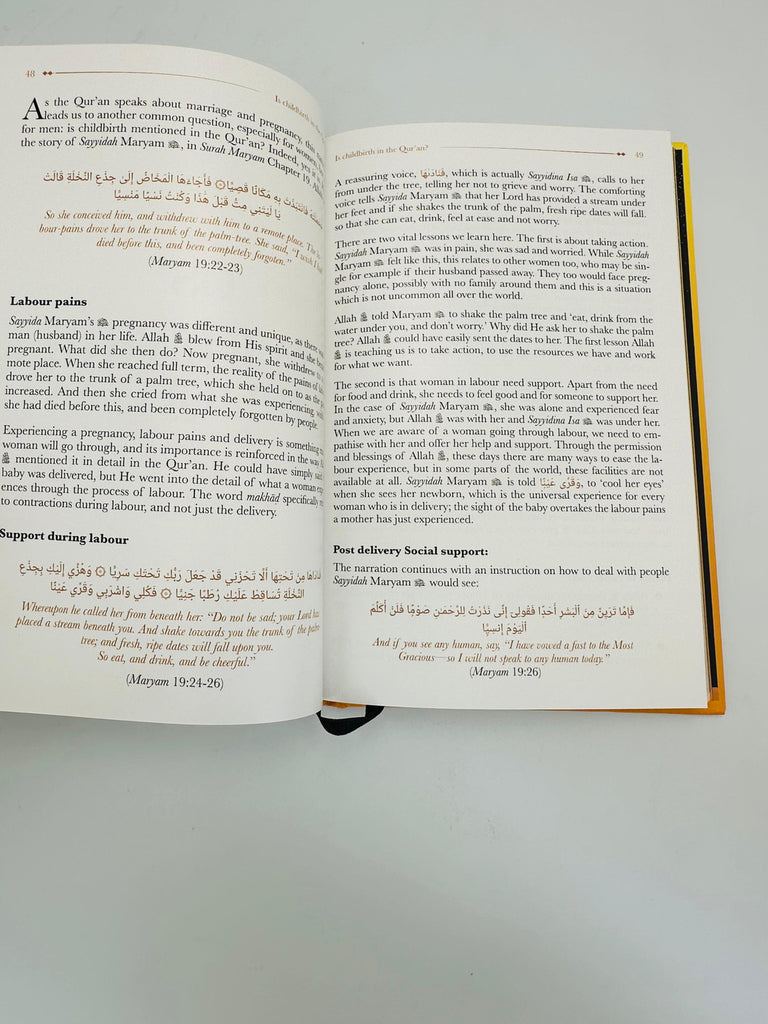 48
Is childbirth in the
As the Qur'an speaks about marriage and pregnancy, this
leads us to another common question, especially for women,
for men: is childbirth mentioned in the Qur'an? Indeed, yes
the story of Sayyidah Maryam, in Surah Maryam Chapter 19,
فَانتَبَذَتْ بِهِ مَكَانًا قَصِيًّا ۞ فَأَجَاءَهَا الْمَخَاضُ إِلَىٰ جِذْعِ النَّخْلَةِ قَالَتْ
يَا لَيْتَنِي مِتُّ قَبْلَ هَٰذَا وَكُنتُ نَسْيًا مَّنسِيًّا
So she conceived him, and withdrew with him to a remote place. The
bour-pains drove her to the trunk of the palm-tree. She said, "I wish I
died before this, and been completely forgoten."
(Maryam 19:22-23)
Labour pains
Sayyida Maryam's pregnancy was different and unique, as there
man (husband) in her life. Allah blew from His spirit and she
pregnant. What did she then do? Now pregnant, she withdrew
mote place. When she reached full term, the reality of the pains of
drove her to the trunk of a palm tree, which she held on to as the
increased. And then she cried from what she was experiencing,
she had died before this, and been completely forgotten by people.
Experiencing a pregnancy, labour pains and delivery is something
woman will go through, and its importance is reinforced in the way
mentioned it in detail in the Qur'an. He could have simply said
baby was delivered, but He went into the detail of what a woman
ences through the process of labour. The word makhād specifically
to contractions during labour, and not just the delivery.
Support during labour
فَنَادَاهَا مِن تَحْتِهَا أَلَّا تَحْزَنِي قَدْ جَعَلَ رَبُّكِ تَحْتَكِ سَرِيًّا ۞ وَهُزِّي إِلَيْكِ بِجِذْعِ
النَّخْلَةِ تُسَاقِطْ عَلَيْكِ رُطَبًا جَنِيًّا ۞ فَكُلِي وَاشْرَبِي وَقَرِّي عَيْنًا
Whereupon he called her from beneath her: "Do not be sad; your Lord has
placed a stream beneath you. And shake towards you the trunk of the palm
tree; and fresh, ripe dates will fall upon you.
So eat, and drink, and be cheerful."
(Maryam 19:24-26)
Is childbirth in the Qur'an?
49
A reassuring voice, فَنَادَىٰهَا, which is actually Sayyidina Isa, calls to her
from under the tree, telling her not to grieve and worry. The comforting
voice tells Sayyida Maryam that her Lord has provided a stream under
her feet and if she shakes the trunk of the palm, fresh ripe dates will fall.
so that she can eat, drink, feel at ease and not worry.
There are two vital lessons we learn here. The first is about taking action.
Sayyidah Maryam was in pain, she was sad and worried. While Sayyidah
Maryam felt like this, this relates to other women too, who may be sin-
gle for example if their husband passed away. They too would face preg-
nancy alone, possibly with no family around them and this is a situation
which is not uncommon all over the world.
Allah ﷻ told Maryam to shake the palm tree and 'eat, drink from the
water under you, and don't worry.' Why did He ask her to shake the palm
tree? Allah ﷻ could have easily sent the dates to her. The first lesson Allah
ﷻ is teaching us is to take action, to use the resources we have and work
for what we want.
The second is that woman in labour need support. Apart from the need
for food and drink, she needs to feel good and for someone to support her.
In the case of Sayyidah Maryam, she was alone and experienced fear
and anxiety, but Allah ﷻ was with her and Sayyidina Isa was under her.
When we are aware of a woman going through labour, we need to em-
pathise with her and offer her help and support. Through the permission
and blessings of Allah ﷻ, these days there are many ways to ease the la-
bour experience, but in some parts of the world, these facilities are not
available at all. Sayyidah Maryam is told وَقَرِّي عَيْنًا, to 'cool her eyes'
when she sees her newborn, which is the universal experience for every
woman who is in delivery; the sight of the baby overtakes the labour pains
a mother has just experienced.
Post delivery Social support:
The narration continues with an instruction on how to deal with people
Sayyidah Maryam would see:
فَإِمَّا تَرَيِنَّ مِنَ ٱلْبَشَرِ أَحَدًا فَقُولِىٓ إِنِّى نَذَرْتُ لِلرَّحْمَٰنِ صَوْمًا فَلَنْ أُكَلِّمَ
ٱلْيَوْمَ إِنسِيًّا
And if you see any human, say, "I have vowed a fast to the Most
Gracious—so I will not speak to any human today."
(Maryam 19:26)